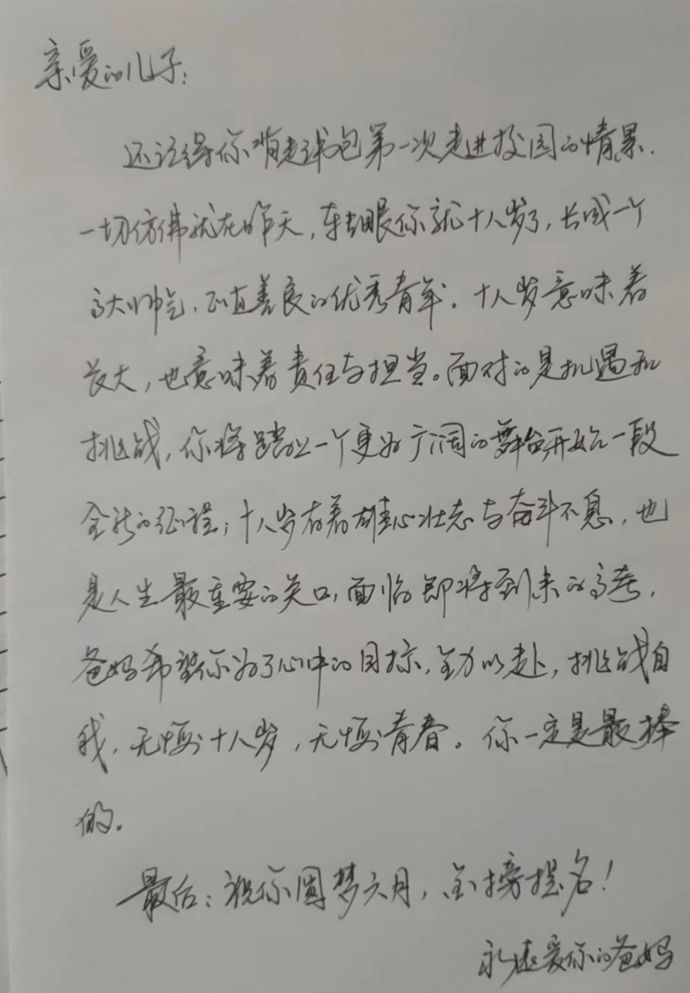 亲爱的儿子：
还记得你背起书包第一次走进校园的情景.
一切仿佛就在昨天,转眼你就十八岁了,长成一个
高大帅气,正直善良的优秀青年.十八岁意味着
长大,也意味着责任与担当。面对的是机遇和
挑战,你将踏上一个更为广阔的舞台开始一段
全新的征程；十八岁有着雄心壮志与奋斗不息,也
是人生最重要的关口,面临即将到来的高考,
爸妈希望你为了心中的目标,全力以赴,挑战自
我,无悔十八岁,无悔青春.你一定是最棒
的。
最后：祝你圆梦六月,金榜提名!
永远爱你的爸妈